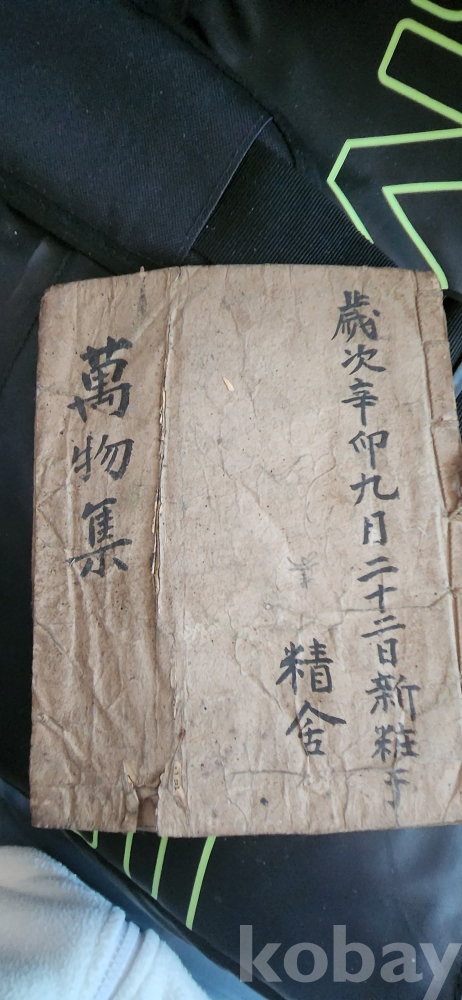 歲次辛卯九月二十二日新粧于
精舍
萬物集
kobay